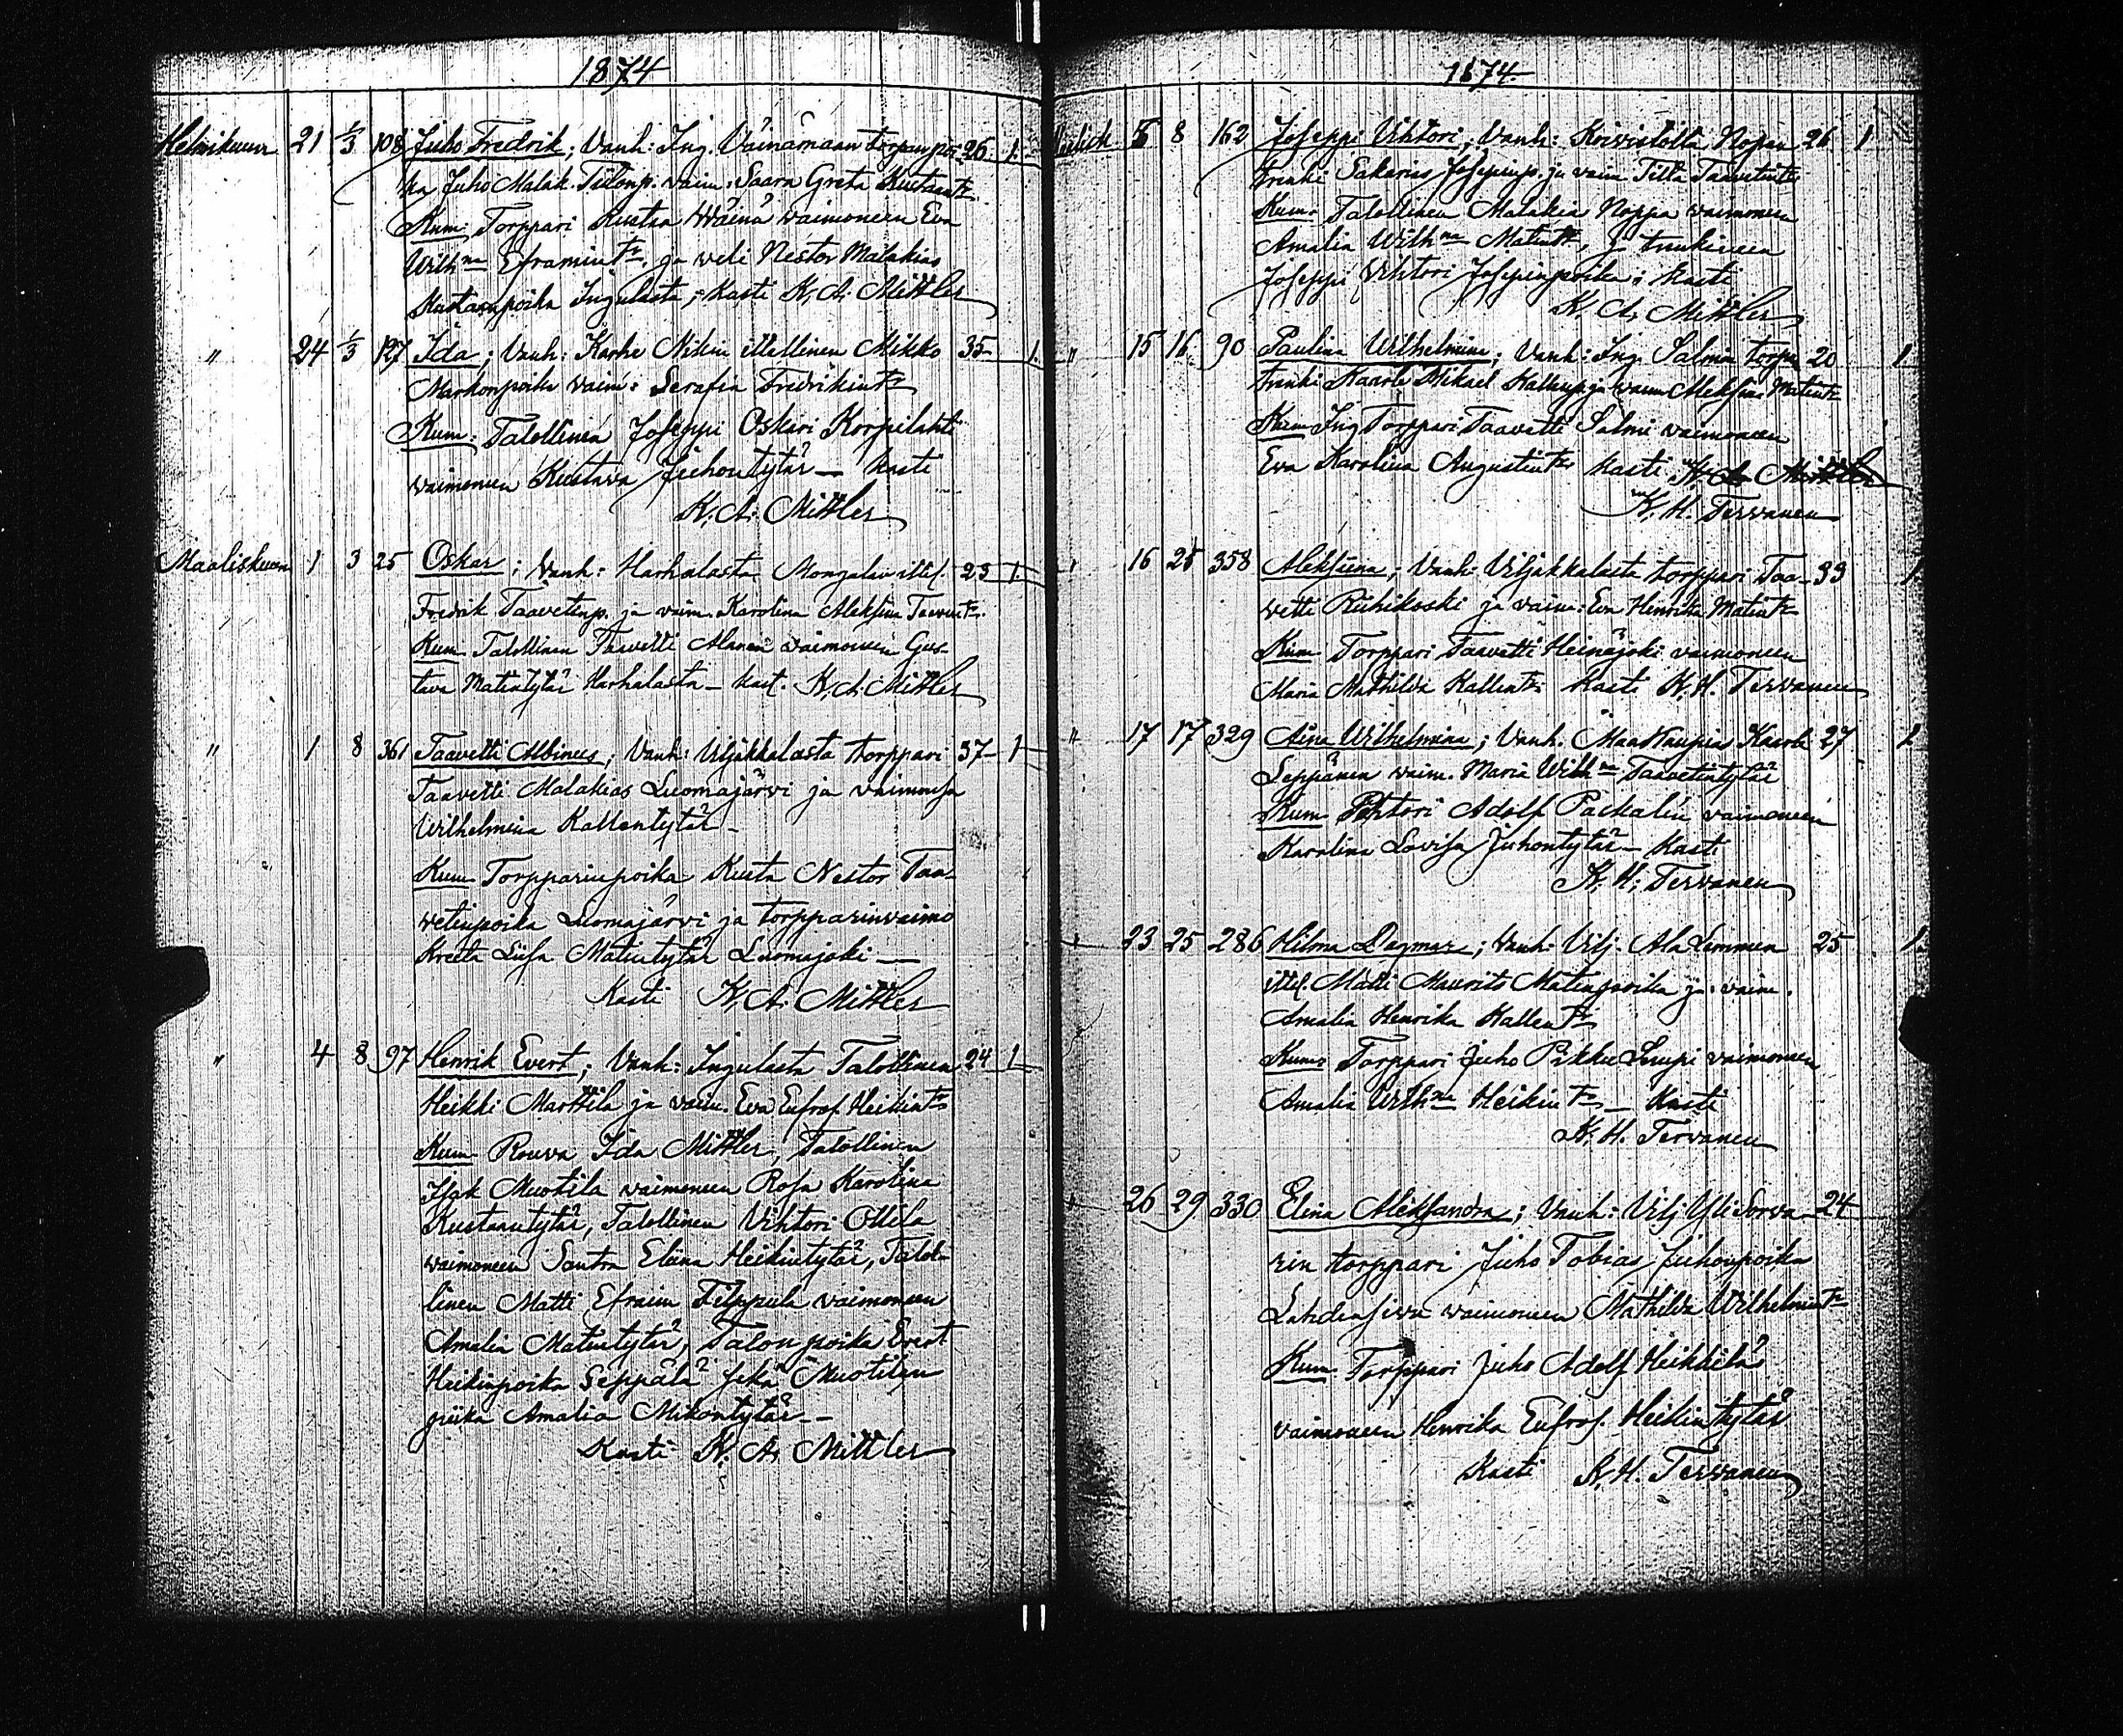 1874
Helmikuun 21 1/3 108 Juho Fredrik; Vanh: Ing. Väinämaan torpan poi- 26 1.
ka Juho Malak. Tiilonp. vaim: Saara Greta Kustaantr
Kum: Torppari Kustaa Wäinä waimoneen Eva
Wilhna Eframintr. ja veli Nestor Malakias
Kustaanpoika Ingulasta; Kasti K. A. Mittler
" 24 1/3 127 Ida; Vanh: Karhe Nikin itellinen Mikko 35 1.
Markonpoika vaim: Serafia Fredrikintr
Kum: Talollinen Joseppi Oskari Korpilahti
waimoneen Kustava Juhontytär — Kasti
K. A. Mittler
Maaliskuun 1 3 25 Oskar; Vanh: Harhalasta Mongalan ittel. 23 1.
Fredrik Taavetinp. ja vaim. Karolina Aleksina Taavitr.
Kum. Talollinen Taavetti Alanen waimoneen Gus-
tava Matintytär Harhalasta — Kast. K. A. Mittler
" 1 8 361 Taavetti Albinus; Vanh: Viljakkalasta torppari 37 1
Taavetti Malakias Luomajärvi ja vaimonsa
Wilhelmina Kallentytär —
Kum Torpparinpoika Kusta Nestor Taa-
vetinpoika Luomajärvi ja torpparinvaimo
Kreeta Liisa Matintytär Luomajoki —
Kasti K. A. Mittler
" 4 8 97 Henrik Evert; Vanh: Ingulasta Talollinen 24 1
Heikki Marttila ja vaim. Eva Eufros. Heikintr
Kum Rouva Ida Mittler, Talollinen
Isak Muotila waimoneen Rosa Karolina
Kustaantytär, Talollinen Vihtori Ollila
waimoneen Santra Eliina Heikintytär, Talol-
linen Matti Efraim Filppula vaimoneen
Amalia Matintytär, Talonpoika Evert
Heikinpoika Seppälä sekä Muotilan
piika Amalia Mikontytär —
Kasti K. A. Mittler
1874
5 8 162 Joseppi Vihtori; Vanh: Koivistolta Nopan 26 1
trenki Sakarias Josepinp. ja vaim Tilta Taavetintr
Kum: Talollinen Malakia Noppa waimoneen
Amalia Wilhna Matintr, ja
Joseppi Vihtori Josepinpoika; Kasti
K. A. Mittler
" 15 16 90 Paulina Wilhelmina; Vanh: Ing. Salmin torpn 20 1
trenki Kaarle Mikael Kallenp ja vaim Aleksan. Matintr
Kum Ing Torppari Taavetti Salmi waimoneen
Eva Karolina Augustintr Kasti K. A. Mittler
K. H. Tervanen
" 16 25 358 Aleksiina; Vanh: Viljakkalasta torppari Taa- 33 1
vetti Riihikoski ja vaim: Eva Henrika Matintr
Kum Torppari Taavetti Heinäjoki vaimoneen
Maria Mathilda Kallentr Kasti K. H. Tervanen
" 17 17 329 Aina Wilhelmina; Vanh. Maakauppias Kaarle 27 1.
Leppänen vaim. Maria Wilhna Taavetintytär
Kum Adolf Packalin vaimoneen
Karolina Lovisa Juhontytär — Kasti
K. H. Tervanen
" 23 25 286 Hilma Dagmar; Vanh: Vilj. Ala Lammin 25 1.
ittel. Matti Maurits Matinpoika ja vaim.
Amalia Henrika Kallentr
Kum: Torppari Juho Pikku vaimoneen
Amalia Wilhna Heikintr — Kasti
K. H. Tervanen
" 26 29 330 Elina Aleksandra; Vanh: Vilj Yli Sorva- 24
rin torppari Juho Tobias Juhonpoika
Lahdensivu waimoneen Mathilda Wilhelmintr
Kum Torppari Juho Adolf Heikkilä
vaimoneen Henrika Eufros. Heikintytär
Kasti K. H. Tervanen